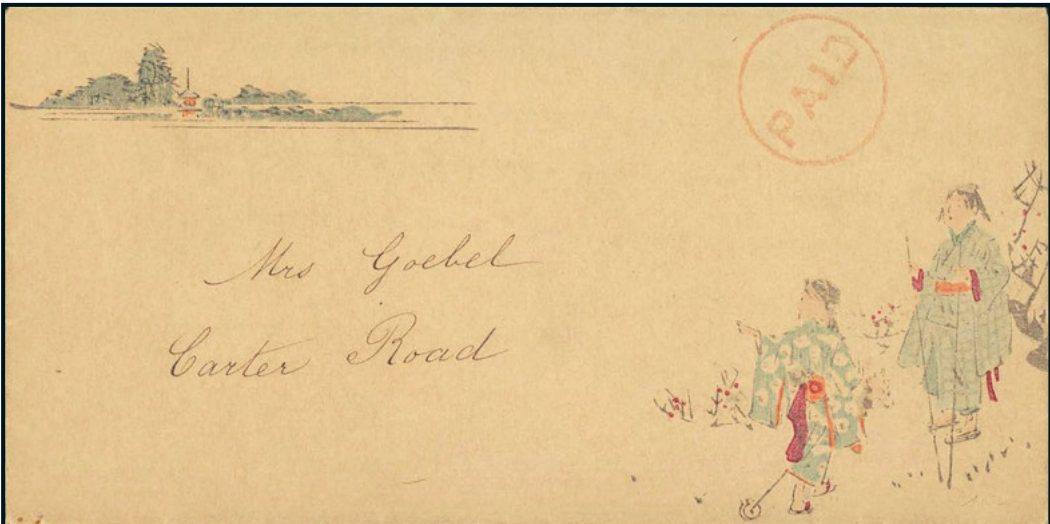 PAID
Mrs Goebel
Carter Road